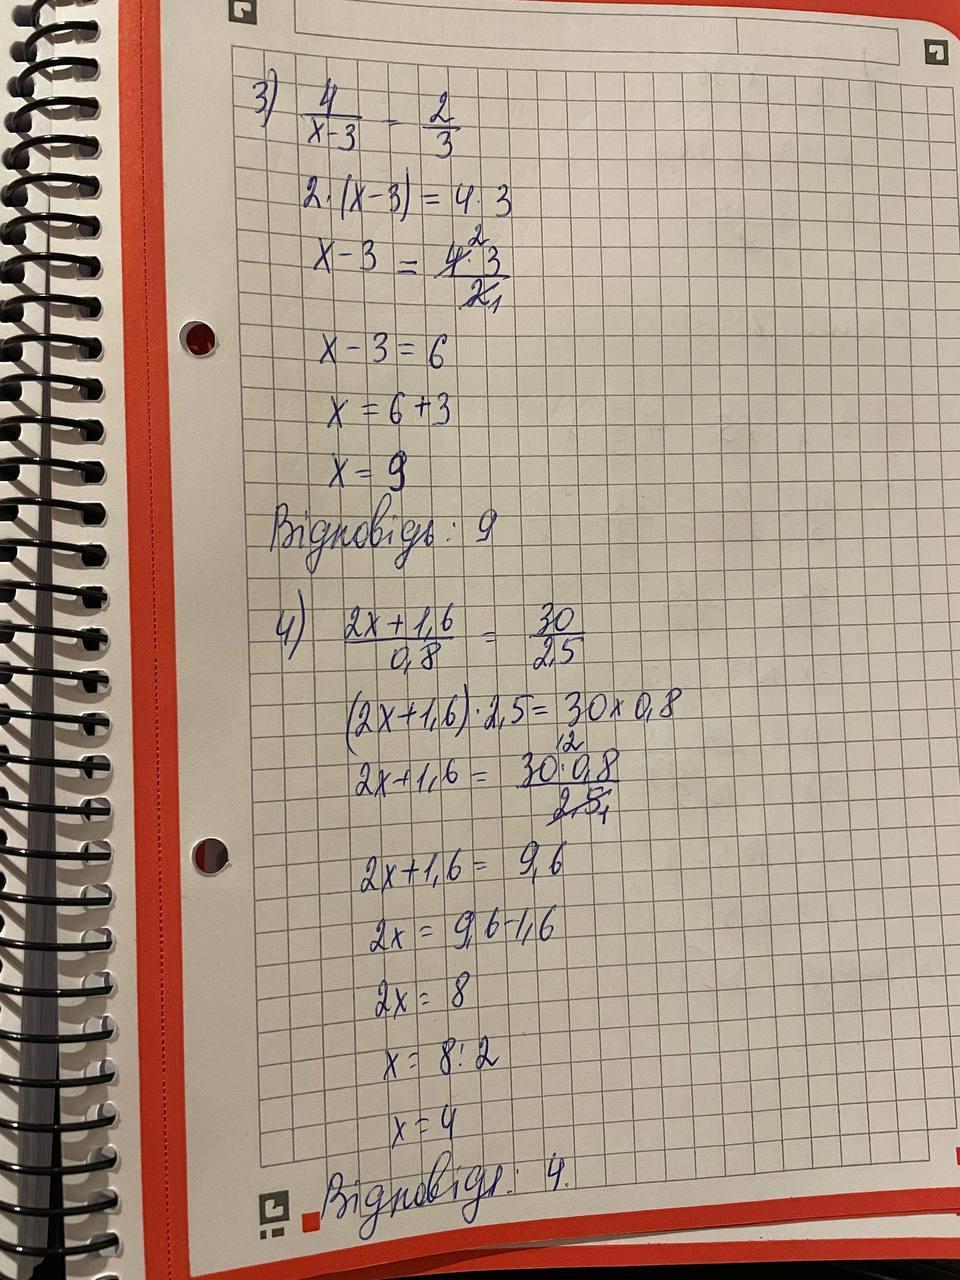 3) 4/(x-3) = 2/3
2·(x-3) = 4·3
x-3 = 4²·3/2₁
x-3 = 6
x = 6+3
x = 9
Відповідь: 9
4) (2x+1,6)/0,8 = 30/2,5
(2x+1,6)·2,5 = 30×0,8
2x+1,6 = 30¹²·0,8/2,5₁
2x+1,6 = 9,6
2x = 9,6-1,6
2x = 8
x = 8:2
x = 4
Відповідь: 4.